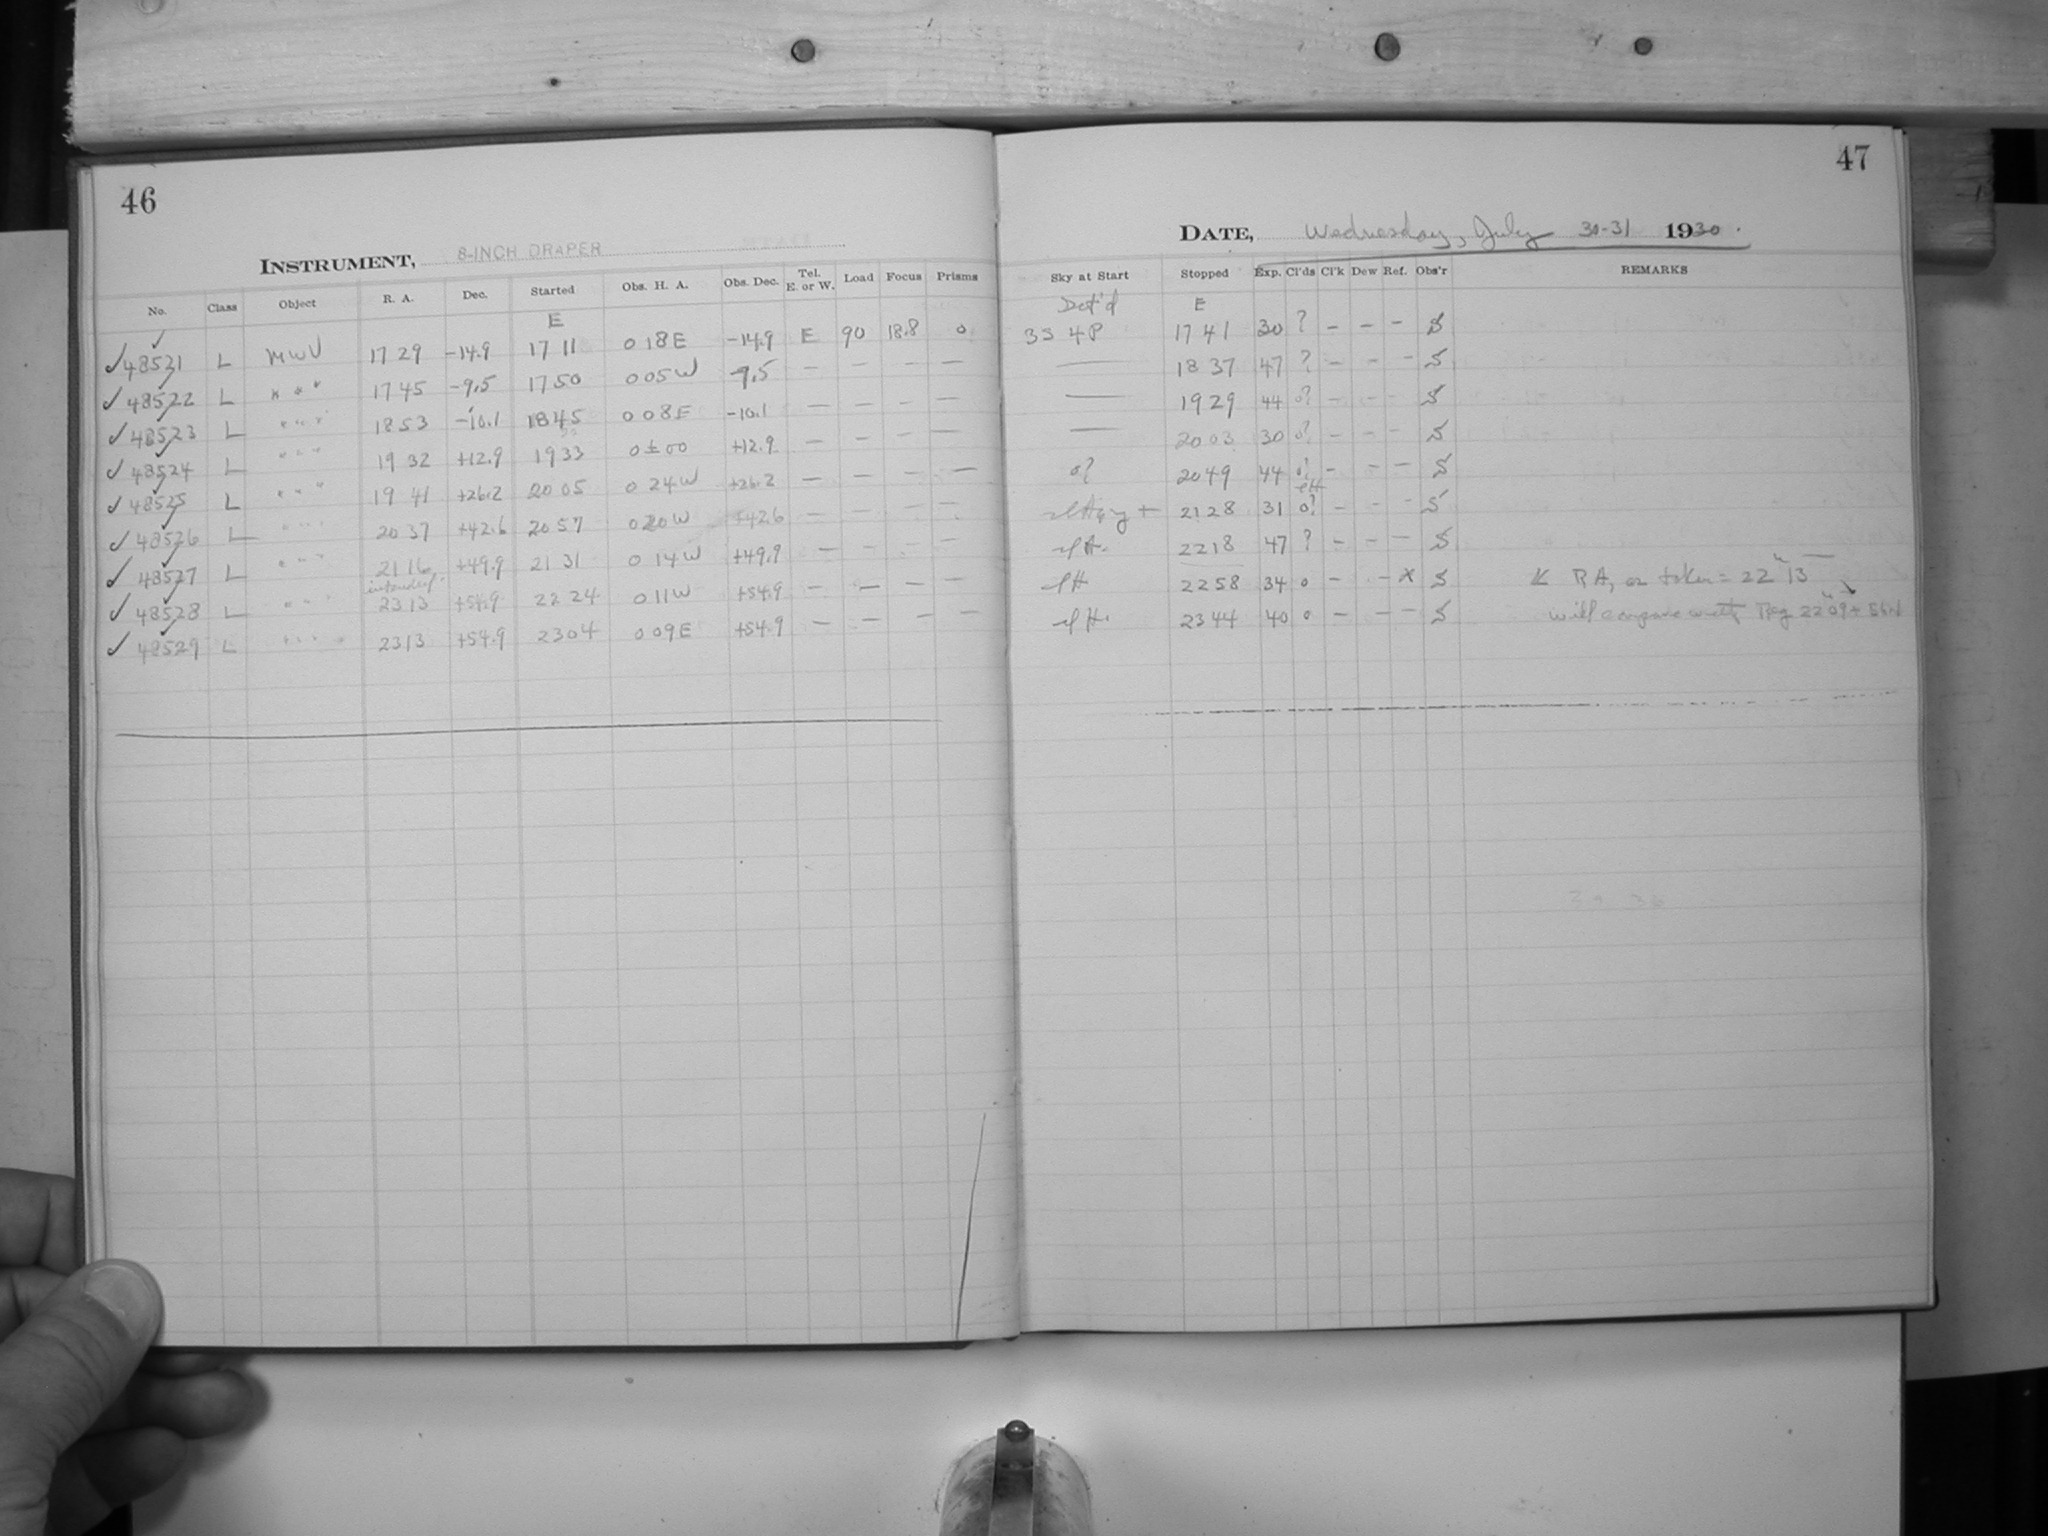 46
INSTRUMENT, 8-INCH DRAPER
No. Class Object R. A. Dec. Started Obs. H. A. Obs. Dec. Tel. E. or W. Load Focus Prisms
E
✓ 48521 L MWV 17 29 -14.9 17 11 0 18E -14.9 E 90 18.8 0
✓ 48522 L " " " 17 45 -9.5 17 50 0 05W -9.5 — — — —
✓ 48523 L " " " 18 53 -10.1 18 45 0 08E -10.1 — — — —
✓ 48524 L " " " 19 32 +12.9 19 33 0 ± 00 +12.9 — — — —
✓ 48525 L " " " 19 41 +26.2 20 05 0 24W +26.2 — — — —
✓ 48526 L " " " 20 37 +42.6 20 57 0 20W +42.6 — — — —
✓ 48527 L " " " 21 16 +49.9 21 31 0 14W +49.9 — — — —
intended
✓ 48528 L " " " 23 13 +54.9 22 24 0 11W +54.9 — — — —
✓ 48529 L " " " 23 13 +54.9 23 04 0 09E +54.9 — — — —
47
DATE, Wednesday, July 30-31 1930.
Sky at Start Stopped Exp. Cl'ds Cl'k Dew Ref. Obs'r REMARKS
E
3S 4P 17 41 30 ? — — — S
— 18 37 47 ? — — — S
— 19 29 44 0? — — — S
— 20 03 30 0? — — — S
0? 20 49 44 0? — — — S
21 28 31 0? — — — S
22 18 47 ? — — — S
22 58 34 0 — — × S R A, as taken = 22 13
23 44 40 0 — — — S will compare with 22 09 +